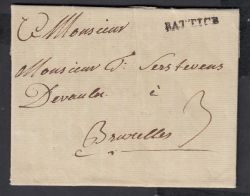 Monsieur
BATTICE
Monsieur F: Serstevens
Devaulx à
Bruxelles 3